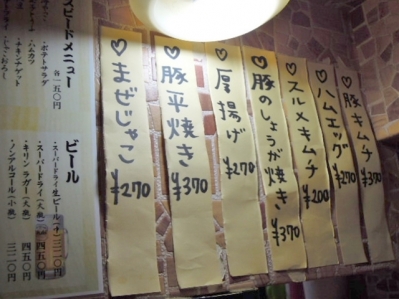 ♡豚キムチ ¥370
♡ハムエッグ ¥270
♡スルメキムチ ¥200
♡豚のしょうが焼き ¥370
♡厚揚げ ¥270
♡豚平焼き ¥370
♡まぜじゃこ ¥270
スピードメニュー
各一五〇円
・ポテトサラダ
・ハムカツ
・チキンナゲット
ビール
・スーパードライ生ビール(中)三二〇円
・スーパードライ(大瓶) 四五〇円
・キリンラガー(大瓶) 四五〇円
・ノンアルコール(小瓶) 三二〇円